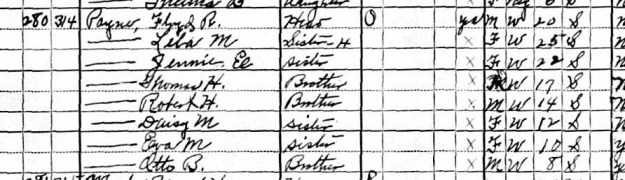 Thelma D Daughter F W 6 S
280 314 Payne, Floyd R. Head O yes M W 20 S
— Leba M Sister-H X F W 25 S
— Jennie El sister X F W 22 S
— Thomas H. Brother X M W 17 S
— Robert H. Brother X M W 14 S
— Daisy M sister X F W 12 S
— Eva M sister X F W 10 S
— Otto B. Brother X M W 8 S